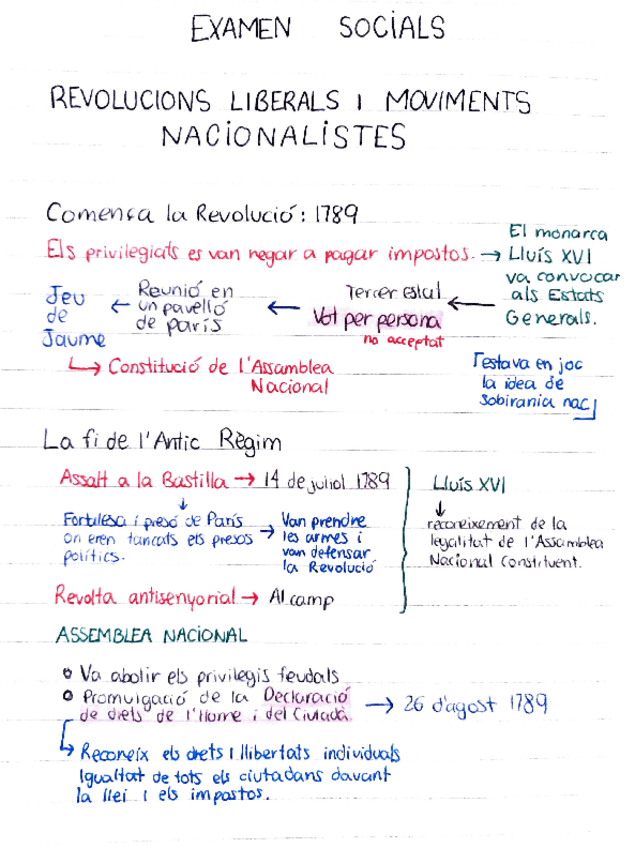 EXAMEN SOCIALS
REVOLUCIONS LIBERALS I MOVIMENTS
NACIONALISTES
Comença la Revolució: 1789
Els privilegiats es van negar a pagar impostos. →
El monarca
Lluís XVI
va convocar
als Estats
Generals.
←
Tercer estat
Vot per persona
no acceptat
←
Reunió en
un pavelló
de parís
←
Jeu
de
Jaume
↳ Constitució de l'Assamblea
Nacional
estava en joc
la idea de
sobirania nac
La fi de l'Antic Règim
Assalt a la Bastilla → 14 de juliol 1789
↓
Fortalesa i presó de París
on eren tancats els presos
polítics.
→
Van prendre
les armes i
van defensar
la Revolució
Revolta antisenyorial → Al camp
Lluís XVI
↓
reconeixement de la
legalitat de l'Assamblea
Nacional Constituent.
ASSEMBLEA NACIONAL
• Va abolir els privilegis feudals
• Promulgació de la Declaració
de drets de l'Home i del Ciutadà.
→ 26 d'agost 1789
↳ Reconeix els drets i llibertats individuals
Igualtat de tots els ciutadans davant
la llei i els impostos.